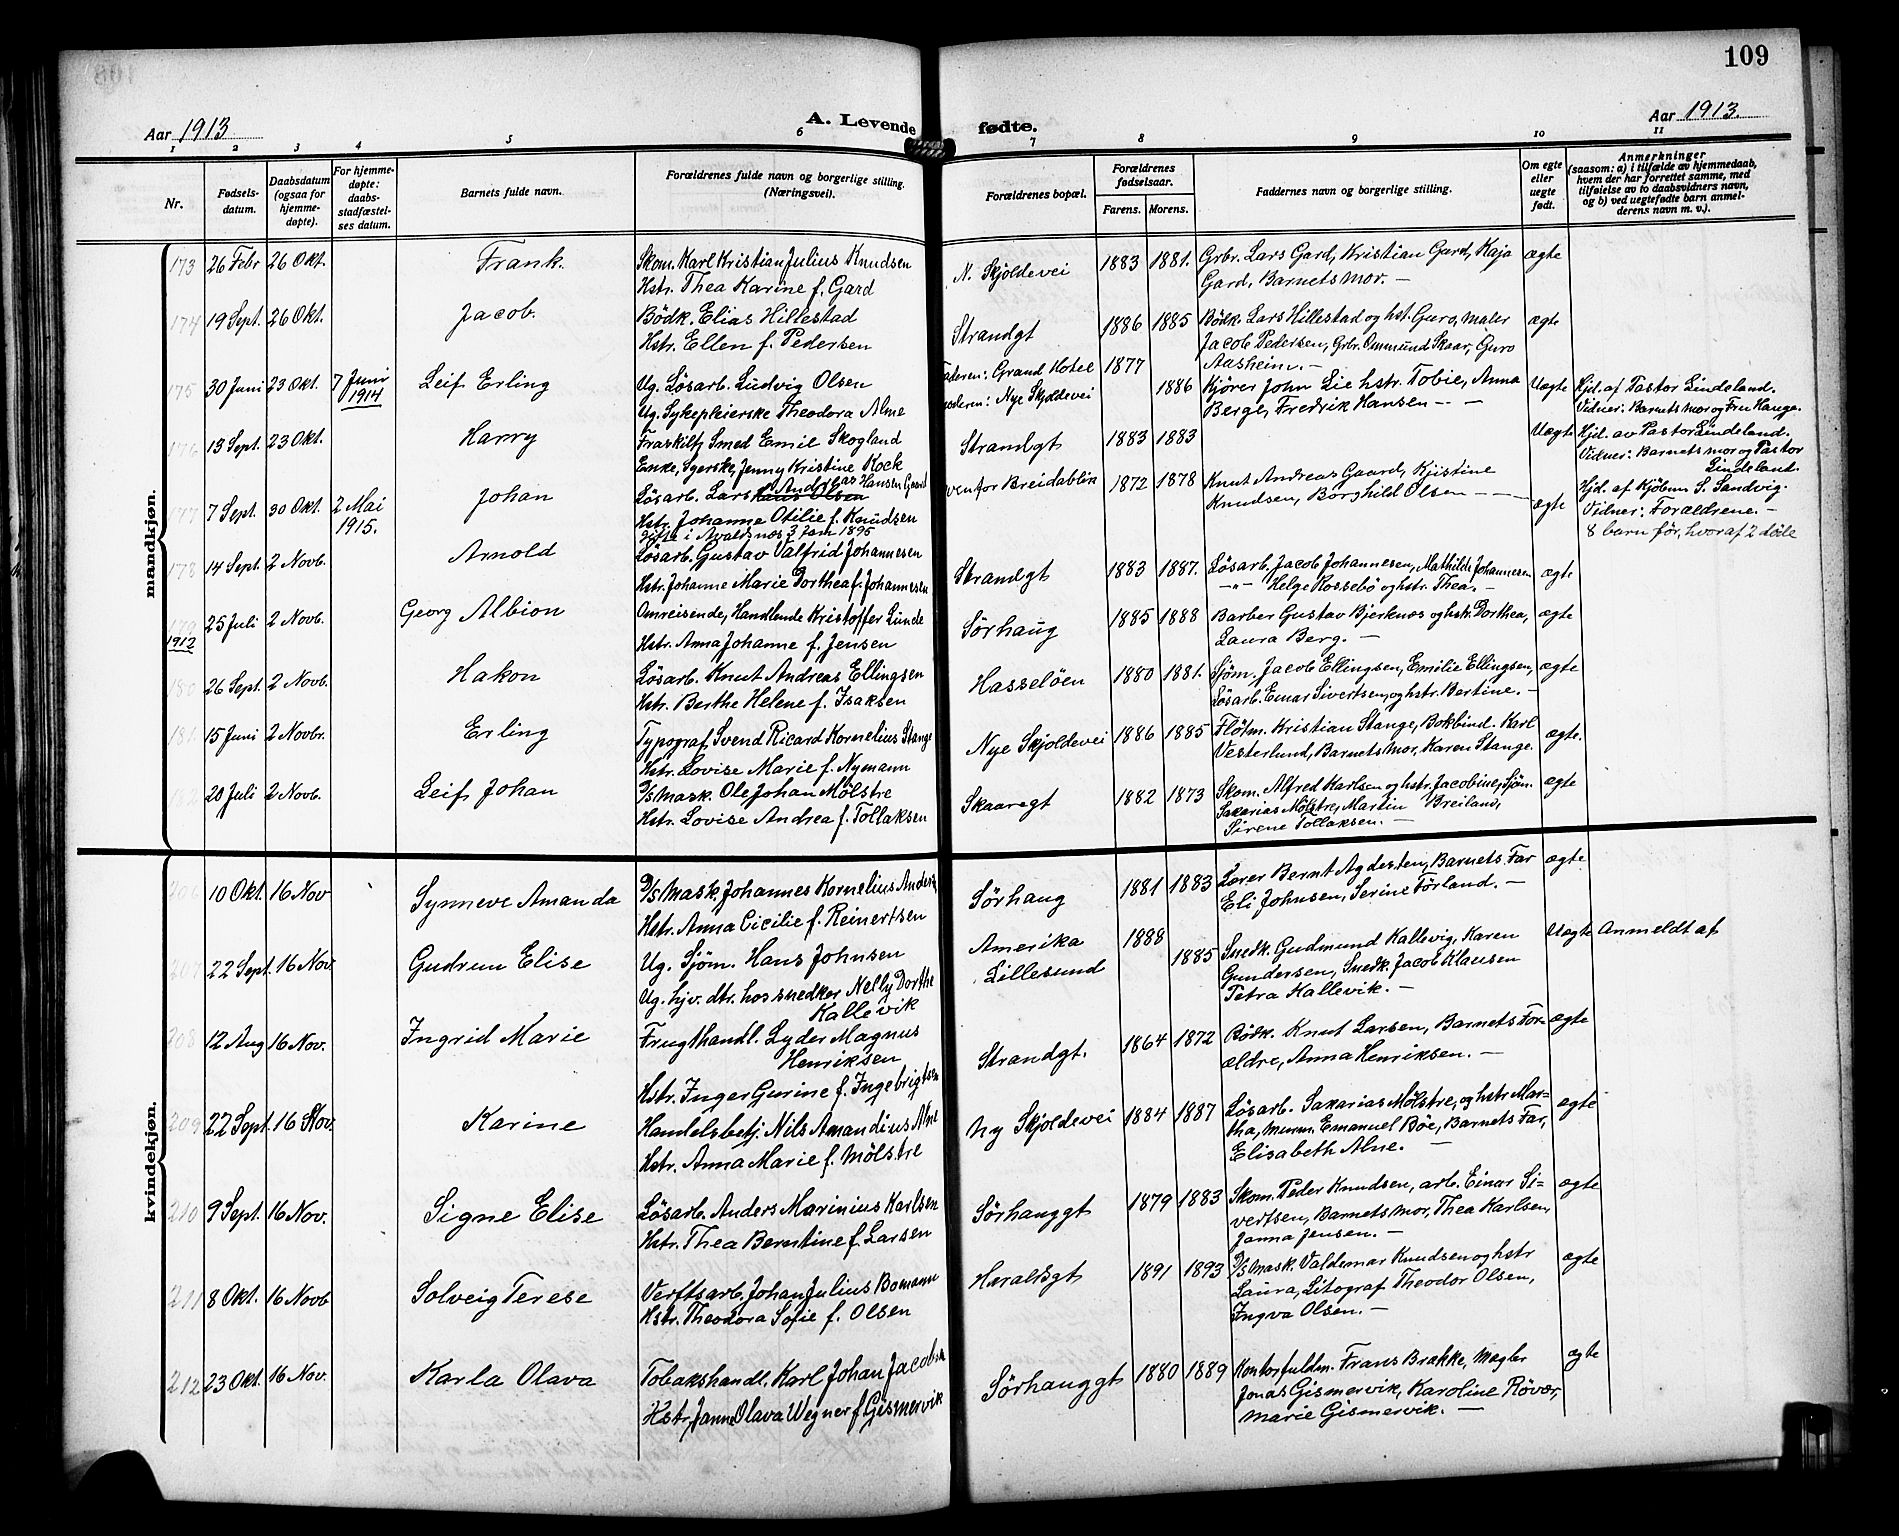 109
Aar 1913 A. Levende fødte. Aar 1913.
1 2 3 4 5 6 7 8 9 10 11
Nr. Fødsels-datum. Daabsdatum (ogsaa for hjemme-døpte). For hjemme-døpte: daabs-stadfæstel-ses datum. Barnets fulde navn. Forældrenes fulde navn og borgerlige stilling. (Næringsvei). Forældrenes bopæl. Forældrenes fødselsaar. Farens. Morens. Faddernes navn og borgerlige stilling. Om egte eller uegte født. Anmerkninger (saasom: a) i tilfælde av hjemmedaab, hvem der har forrettet samme, med tilføielse av to daabsvidners navn, og b) ved uegtefødte barn anmel-derens navn m. v.).
mandkjøn.
173 26 Febr 26 Okt. Frank. Skom. Karl Kristian Julius Knudsen N. Skjoldevei 1883 1881. Grbr. Lars Gard, Kristian Gard, Kaja ægte
Hstr. Thea Karine f. Gard Gard, Barnets mor. —
174 19 Sept. 26 Okt. Jacob. Bödk. Elias Hillestad Strandgt 1886 1885 Bödk. Lars Hillestad og hst. Guro, Maler ægte
Hstr. Ellen f. Pedersen Jacob Pedersen, Grbr. Ommund Skaar, Guro
Aasheim. —
175 30 Juni 23 Okt. 7 Juni 1914 Leif Erling Ug. Lösarb. Ludvig Olsen Faderen: Grand Hotel 1877 Kjörer John Lie hstr. Tobie, Anna Uægte Hjd. af Pastor Lindeland.
Ug. Sykepleierske Theodora Alne Moderen: Nye Skjoldevei 1886 Berge, Fredrik Hansen - - — Vidner: Barnets mor og Fru Hauge.
176 13 Sept. 23 Okt. Harry Fraskilt Smed Emil Skogland Strandgt 1883 1883 Uægte Hjd. av Pastor Lindeland.
Enke, Syerske, Jenny Kristine Kock Vidner: Barnets mor og Pastor
Lindeland.
177 7 Sept. 30 Okt. 2 Mai 1915. Johan Lösarb. Lars Andreas Hansen Gaard ovenfor Breidablik 1872 1878 Knut Andreas Gaard, Kristine ægte Hjd. af Kjöbm S. Sandvig.
Hstr. Johanne Otilie f. Knudsen Knudsen, Borghild Olsen - - — Vidner: Forældrene. —
Gifte i Avaldsnes 3 Jan 1895 8 barn før, hvoraf 2 døde
178 14 Sept. 2 Novb. Arnold Lösarb. Gustav Valfrid Johannesen Strandgt 1883 1887. Lösarb. Jacob Johannesen, Mathilde Johannesen ægte
Hstr. Johanne Marie Dorthea f. Johannesen —"— Helge Rossebö og hstr. Thea. —
179 1912 25 Juli 2 Novb. Georg Albion Omreisende, Handlende Kristoffer Lunde Sörhaug 1885 1888 Barber Gustav Bjerknes og hstr. Dorthea, ægte
Hstr. Anna Johanne f. Jensen Laura Berg. —
180 26 Sept. 2 Novb. Hakon Lösarb. Knut Andreas Ellingsen Hasselöen 1880 1881. Sjöm. Jacob Ellingsen, Emilie Ellingsen, ægte
Hstr. Berthe Helene f. Isaksen Lösarb. Einar Sivertsen, og hstr. Bertine. —
181 15 Juni 2 Novbr. Erling Typograf Svend Ricard Kornelius Stange Nye Skjoldevei 1886 1885 Flötm. Kristian Stange, Bokbind. Karl ægte.
Hstr. Lovise Marie f. Nymann Vesterlund, Barnets mor, Karen Stange.
20 Juli 2 Novb. Leif Johan D/S Mask. Ole Johan Mölstre Skaaregt 1882 1873 Skom. Alfred Karlsen og hstr. Jacobine, Sjöm. ægte
Hstr. Lovise Andrea f. Tollaksen Sakarias Mölstre, Martin Breiland,
Sirene Tollaksen. —
kvindekjøn.
206 10 Okt. 16 Nov Synneve Amanda D/S Mask. Johannes Kornelius Anders. Sörhaug 1881 1883 Lærer Bernt Agdesten, Barnets Far ægte
Hstr. Anna Cicilie f. Reinertsen Eli Johnsen, Serine Förland. —
207 22 Sept. 16 Nov. Gudrun Elise Ug. Sjöm. Hans Johnsen Amerika 1888 Snedk. Gudmund Kallevig, Karen Uægte Anmeldt af
Ug. hjv. dtr. hos snedker Nelly Dorthe Lillesund 1885 Gundersen, Snedk. Jacob Klausen
Kallevik Petra Kallevik. —
208 12 Aug 16 Nov. Ingrid Marie Frugthandl. Lyder Magnus Strandgt. 1864 1872 Bödk. Knut Larsen, Barnets For- ægte
Henriksen ældre, Anna Henriksen. —
Hstr. Inger Gurine f. Ingebrigtsen
209 22 Sept. 16 Nov. Karine Handelsbetj. Nils Amandius Alne Ny Skjoldevei 1884 1887 Lösarb. Sakarias Mölstre, og hstr Mar- ægte
Hstr. Anna Marie f. Mölstre tha, Murm. Emanuel Böe, Barnets Far,
Elisabeth Alne. —
210 9 Sept. 16 Nov. Signe Elise Lösarb. Anders Marinius Karlsen Sörhauggt 1879 1883 Skom. Peder Knudsen, arb. Einar Si- ægte
Hstr. Thea Berntine f. Larsen vertsen, Barnets mor, Thea Karlsen,
Janna Jensen. —
211 8 Okt. 16 Novb Solveig Terese Verftsarb. Johan Julius Bomann Haraldsgt 1891 1893 D/S Mask. Valdemar Knudsen og hstr ægte
Hstr. Theodora Sofie f. Olsen Laura, Litograf Theodor Olsen,
Ingva Olsen. —
212 23 Okt. 16 Nov. Karla Olava Tobakshandl. Karl Johan Jacobsen Sörhauggt 1880 1889 Kontorfuldm. Frans Brakke, Mægler ægte
Hstr. Janna Olava Wegner f. Gismervik Jonas Gismervik, Karoline Rövær,
Marie Gismervik. —